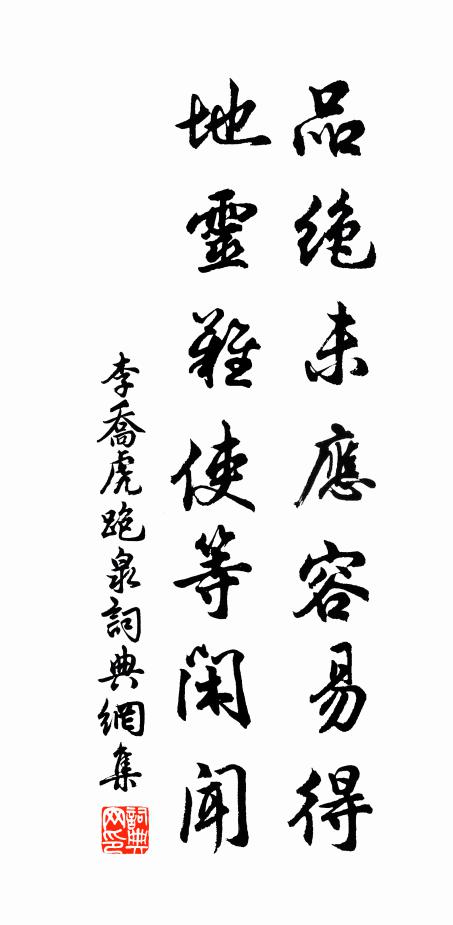 品絶未應容易得
地靈難使等閑聞
李喬虎跑泉詞典網集
詞典網印